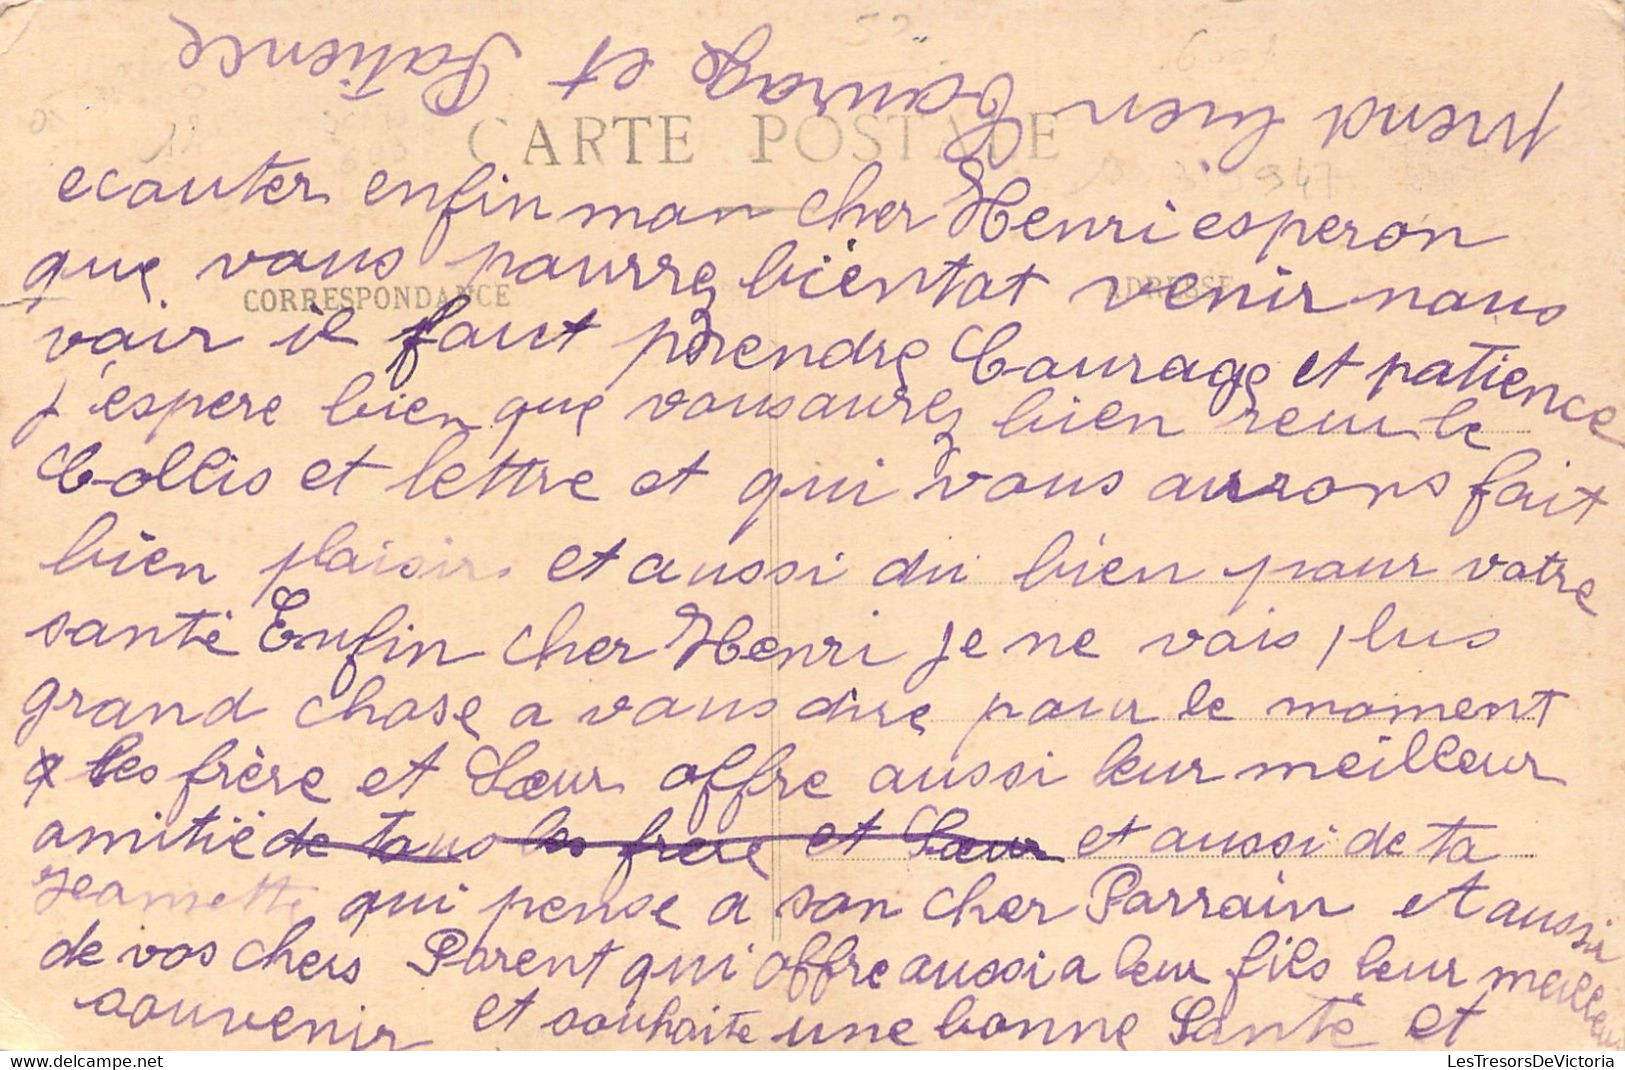 prend bien Courage et Patience
CARTE POSTALE
ecouter enfin mon cher Henri esperon
que vous pourrez bientot venir nous
CORRESPONDANCE
ADRESSE
voir il faut prendre Courage et patience
j'espere bien que vous aurez bien reçu le
Collis et lettre et qui vous aurons fait
bien plaisir et aussi du bien pour votre
santé Enfin cher Henri je ne vois plus
grand chose a vous dire pour le moment
les frère et Sœur offre aussi leur meilleur
amitiè de tous les frere et Sœur et aussi de ta
Jeannette qui pense a son cher Parrain et aussi
de vos chers Parent qui offre aussi a leur fils leur meilleur
souvenir et souhaite une bonne Santé et
LesTresorsDeVictoria